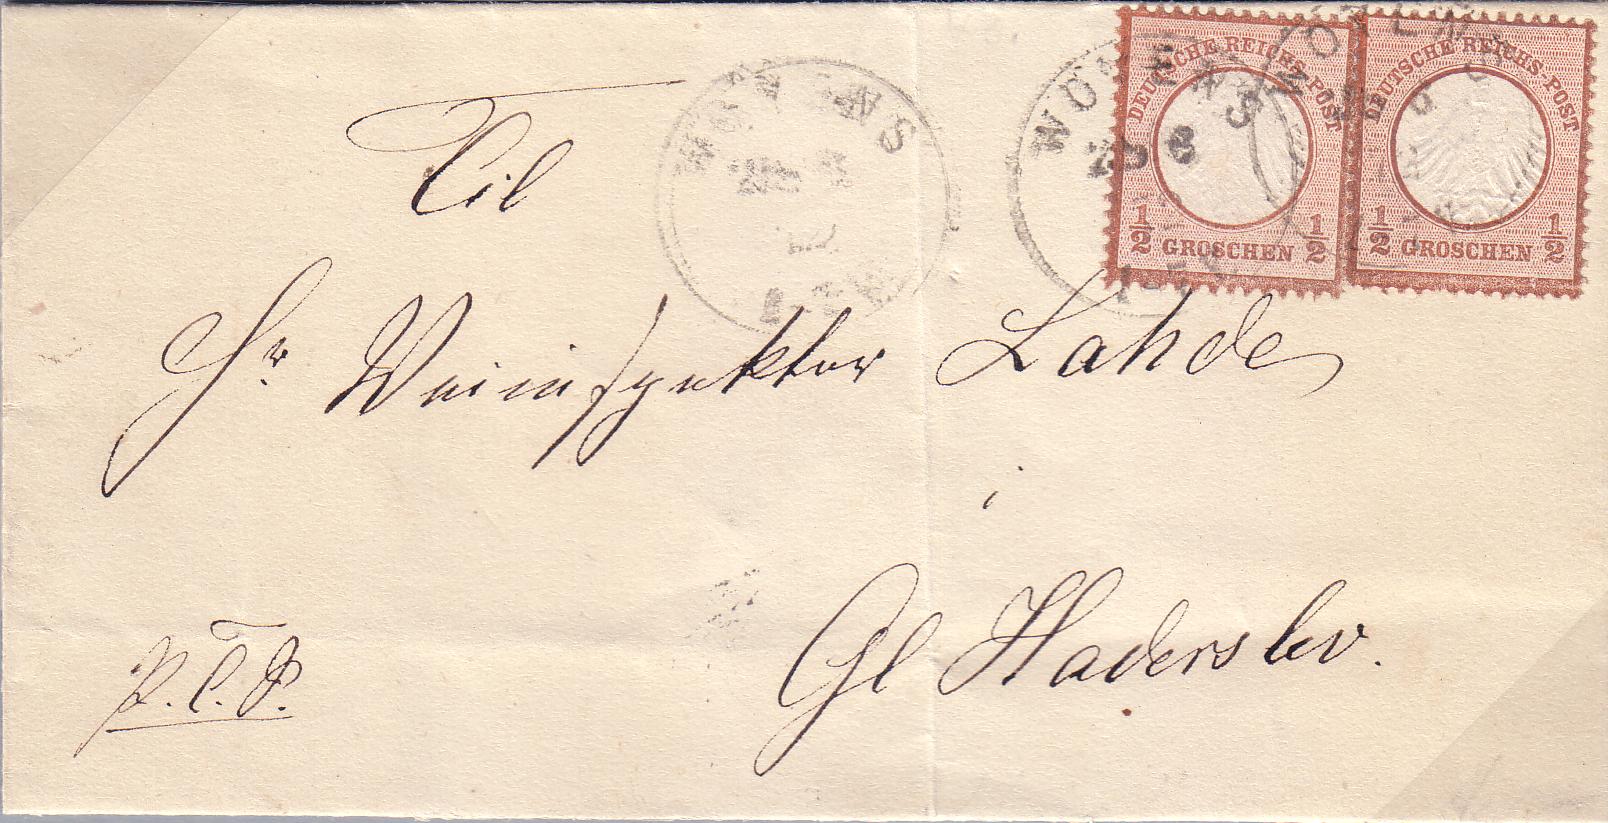 DEUTSCHE REICHS-POST
½ GROSCHEN ½
DEUTSCHE REICHS-POST
½ GROSCHEN ½
WOYENS
WOYENS
WOYENS
Til
Hr Veiinspektor Lahde
i
Gl Haderslev.